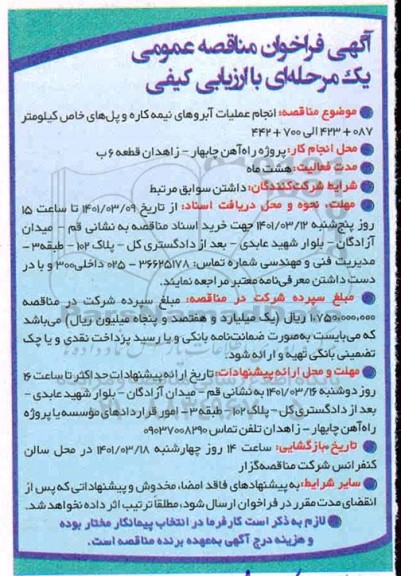 آگهی فراخوان مناقصه عمومی
یک مرحله‌ای با ارزیابی کیفی
موضوع مناقصه: انجام عملیات آبروهای نیمه کاره و پل‌های خاص کیلومتر
۰۸۷ + ۴۲۳ الی ۷۰۰ + ۴۴۲
محل انجام کار: پروژه راه‌آهن چابهار – زاهدان قطعه ۶ ب
مدت فعالیت: هشت ماه
شرایط شرکت‌کنندگان: داشتن سوابق مرتبط
مهلت، نحوه و محل دریافت اسناد: از تاریخ ۱۴۰۱/۰۳/۰۹ تا ساعت ۱۵
روز پنج‌شنبه ۱۴۰۱/۰۳/۱۲ جهت خرید اسناد مناقصه به نشانی قم – میدان
آزادگان – بلوار شهید عابدی – بعد از دادگستری کل – پلاک ۱۰۲ – طبقه ۳ –
مدیریت فنی و مهندسی شماره تماس: ۳۶۶۲۵۱۷۸ – ۰۲۵ داخلی ۳۰۰ و با در
دست داشتن معرفی‌نامه معتبر مراجعه نمایند.
مبلغ سپرده شرکت در مناقصه: مبلغ سپرده شرکت در مناقصه
۱.۷۵۰.۰۰۰.۰۰۰ ریال (یک میلیارد و هفتصد و پنجاه میلیون ریال) می‌باشد
که می‌بایست به‌صورت ضمانت‌نامه بانکی و یا رسید پرداخت نقدی و یا چک
تضمینی بانکی تهیه و ارائه شود.
مهلت و محل ارائه پیشنهادات: تاریخ ارائه پیشنهادات حداکثر تا ساعت ۱۶
روز دوشنبه ۱۴۰۱/۰۳/۱۶ به نشانی قم – میدان آزادگان – بلوار شهید عابدی –
بعد از دادگستری کل – پلاک ۱۰۲ – طبقه ۳ – امور قراردادهای مؤسسه یا پروژه
راه‌آهن چابهار – زاهدان تلفن تماس ۰۹۰۳۷۰۰۸۲۹۰
تاریخ بازگشایی: ساعت ۱۴ روز چهارشنبه ۱۴۰۱/۰۳/۱۸ در محل سالن
کنفرانس شرکت مناقصه‌گزار
سایر شرایط: به پیشنهادهای فاقد امضاء، مخدوش و پیشنهاداتی که پس از
انقضای مدت مقرر در فراخوان ارسال شود، مطلقاً ترتیب اثر داده نخواهد شد.
لازم به ذکر است کارفرما در انتخاب پیمانکار مختار بوده
و هزینه درج آگهی به‌عهده برنده مناقصه است.